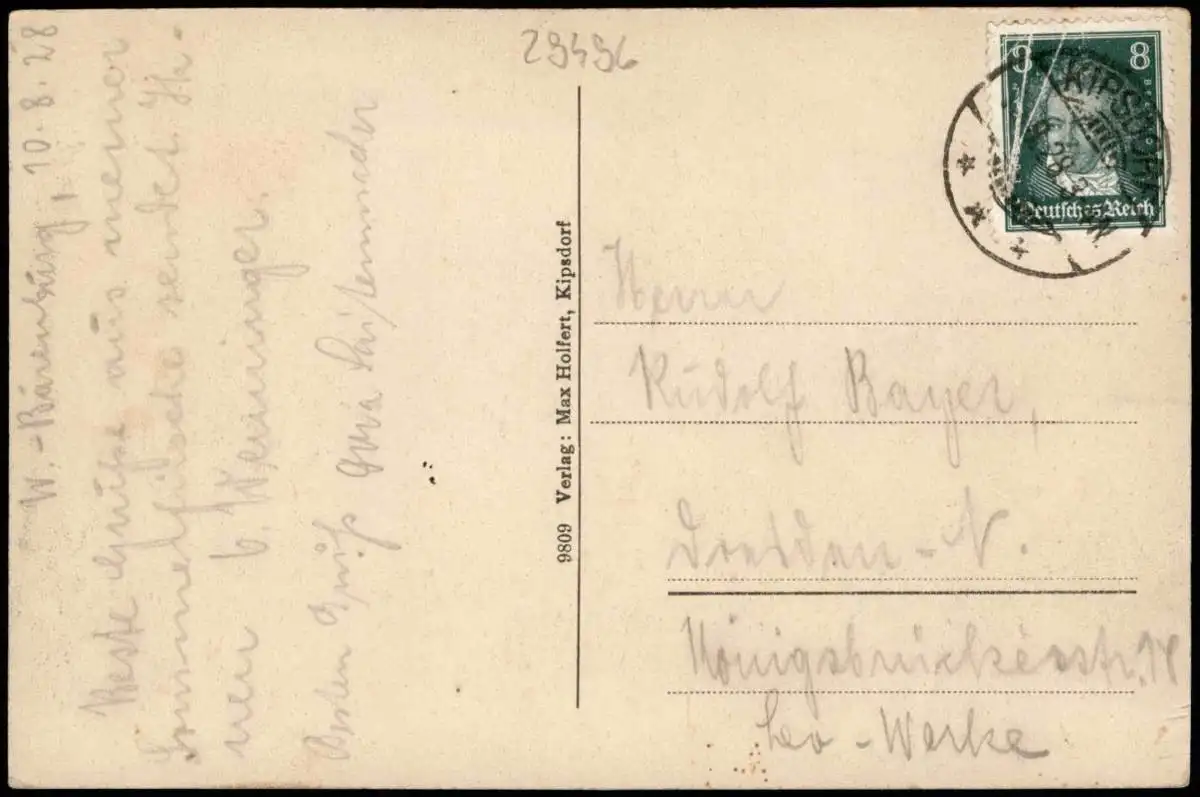 29496
W.-Bärenburg, 10.8.28
Beste Grüße aus meiner
Sommerfrische sendet Ih-
nen b. Weninger.
Besten Gruß
9809 Verlag: Max Holfert, Kipsdorf
8 8
Deutsches Reich
KIPSDORF
28.3
Herrn
Rudolf Bayer,
Dresden-N.
Königsbrückerstr.
Leo-Werke